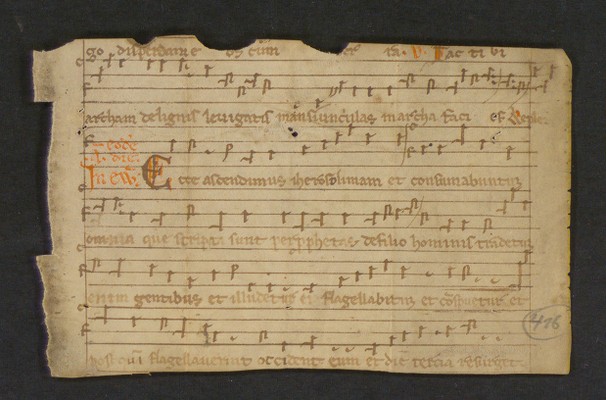 go disperdam e os cum V. fac ti bi
archam de lignis levigatis mansiunculas in archa faci es Reple
In ew Ecce ascendimus iherosolimam et consumabuntur
omnia que scripta sunt per prophetas de filio hominis tradetur
enim gentibus et illudetur ei flagellabitur et conspuetur et
postquam flagellaverint occident eum et die tercia resurget
416